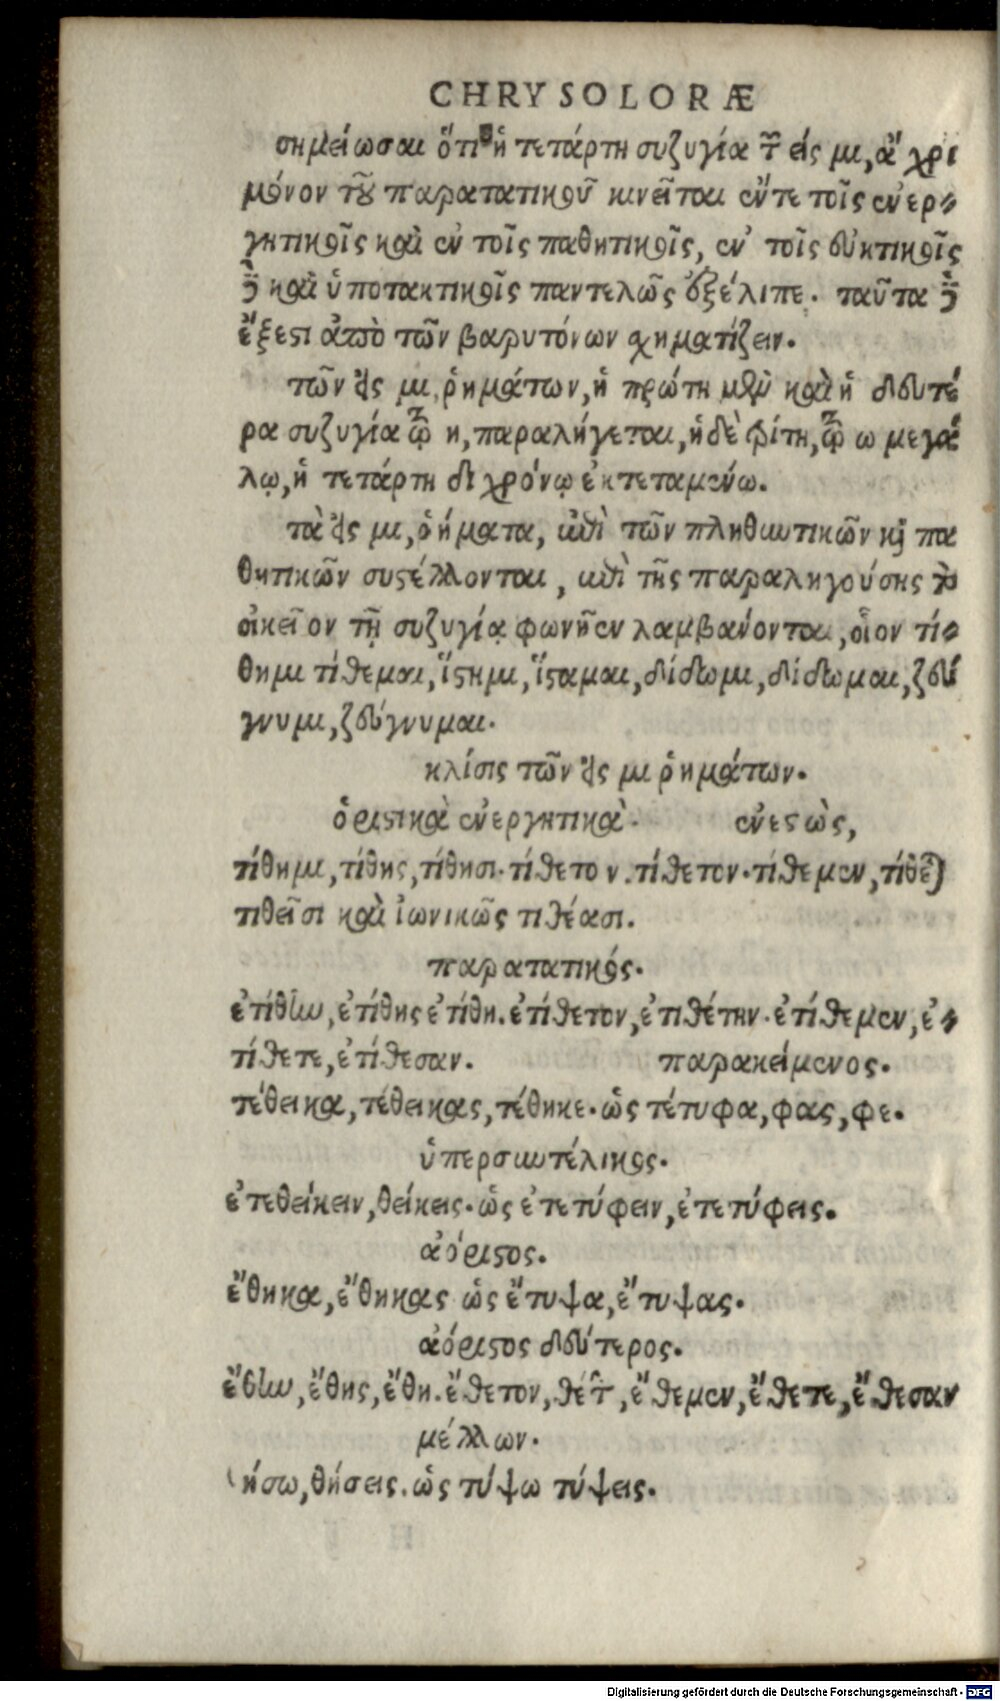 CHRYSOLORÆ
σημείωσαι ὅτι ἡ τετάρτη συζυγία τῶν εἰς μι, ἄχρι
μόνον τοῦ παρατατικοῦ κινεῖται ἔντε τοῖς ἐνερ-
γητικοῖς καὶ ἐν τοῖς παθητικοῖς, ἐν τοῖς εὐκτικοῖς
δὲ καὶ ὑποτακτικοῖς παντελῶς ἐξέλιπε. ταῦτα δὲ
ἔξεστι ἀπὸ τῶν βαρυτόνων σχηματίζειν.
τῶν εἰς μι, ῥημάτων, ἡ πρώτη μὲν καὶ ἡ δευτέ
ρα συζυγία τῷ η, παραλήγεται, ἡ δὲ τρίτη, τῷ ω μεγά
λῳ, ἡ τετάρτη διχρόνῳ ἐκτεταμένω.
τὰ εἰς μι, ῥήματα, ἐπὶ τῶν πληθυντικῶν καὶ πα
θητικῶν συστέλλονται, ἐπὶ τῆς παραληγούσης τὸ
οἰκεῖον τῇ συζυγίᾳ φωνῆεν λαμβάνονται, οἷον τί-
θημι τίθεμαι, ἵστημι, ἵσταμαι, δίδωμι, δίδωμαι, ζεύ
γνυμι, ζεύγνυμαι.
κλίσις τῶν εἰς μι ῥημάτων.
ὁριστικὰ ἐνεργητικὰ. ἐνεστὼς,
τίθημι, τίθης, τίθησι. τίθετον. τίθετον. τίθεμεν, τίθετε
τιθεῖσι καὶ ἰωνικῶς τιθέασι.
παρατατικός.
ἐτίθην, ἐτίθης ἐτίθη. ἐτίθετον, ἐτιθέτην. ἐτίθεμεν, ἐ-
τίθετε, ἐτίθεσαν. παρακείμενος.
τέθεικα, τέθεικας, τέθηκε. ὡς τέτυφα, φας, φε.
ὑπερσυντέλικος.
ἐτεθείκειν, θείκεις. ὡς ἐτετύφειν, ἐτετύφεις.
ἀόριστος.
ἔθηκα, ἔθηκας ὡς ἔτυψα, ἔτυψας.
ἀόριστος δεύτερος.
ἔθην, ἔθης, ἔθη. ἔθετον, θέτην, ἔθεμεν, ἔθετε, ἔθεσαν
μέλλων.
ήσω, θήσεις. ὡς τύψω τύψεις.
Digitalisierung gefördert durch die Deutsche Forschungsgemeinschaft - DFG